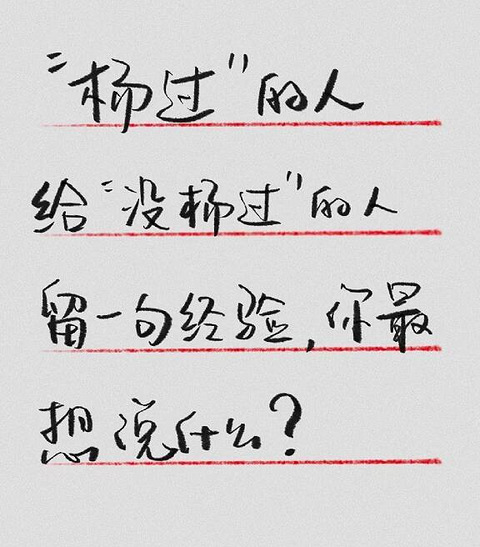 “杨过”的人
给“没杨过”的人
留一句经验，你最
想说什么？